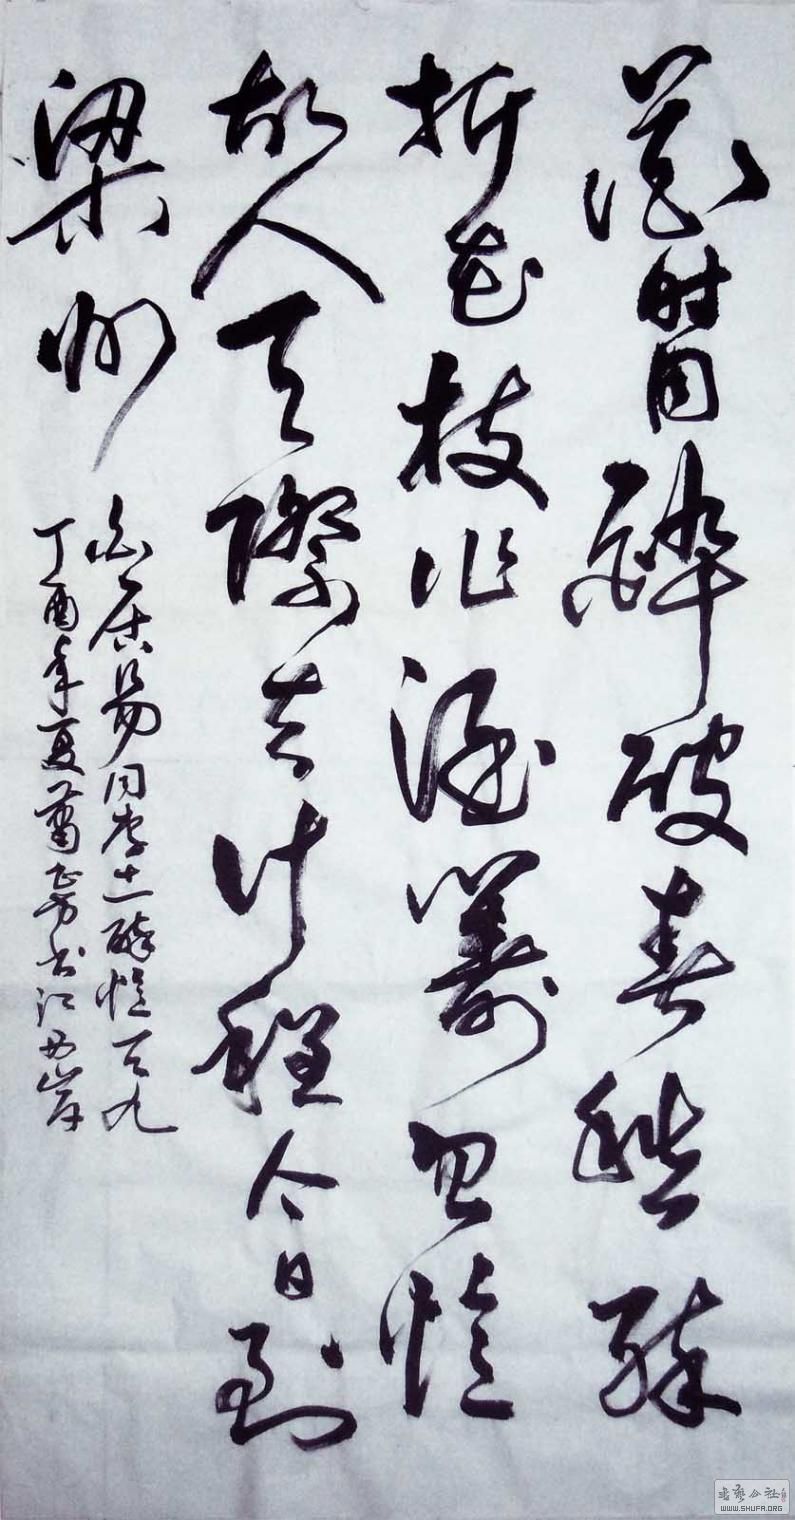 花時同醉破春愁醉
折花枝作酒籌忽憶
故人天際去計程今日到
梁州
白居易同李十一醉憶元九
丁酉年夏蕭
书艺公社
WWW.SHUFA.ORG